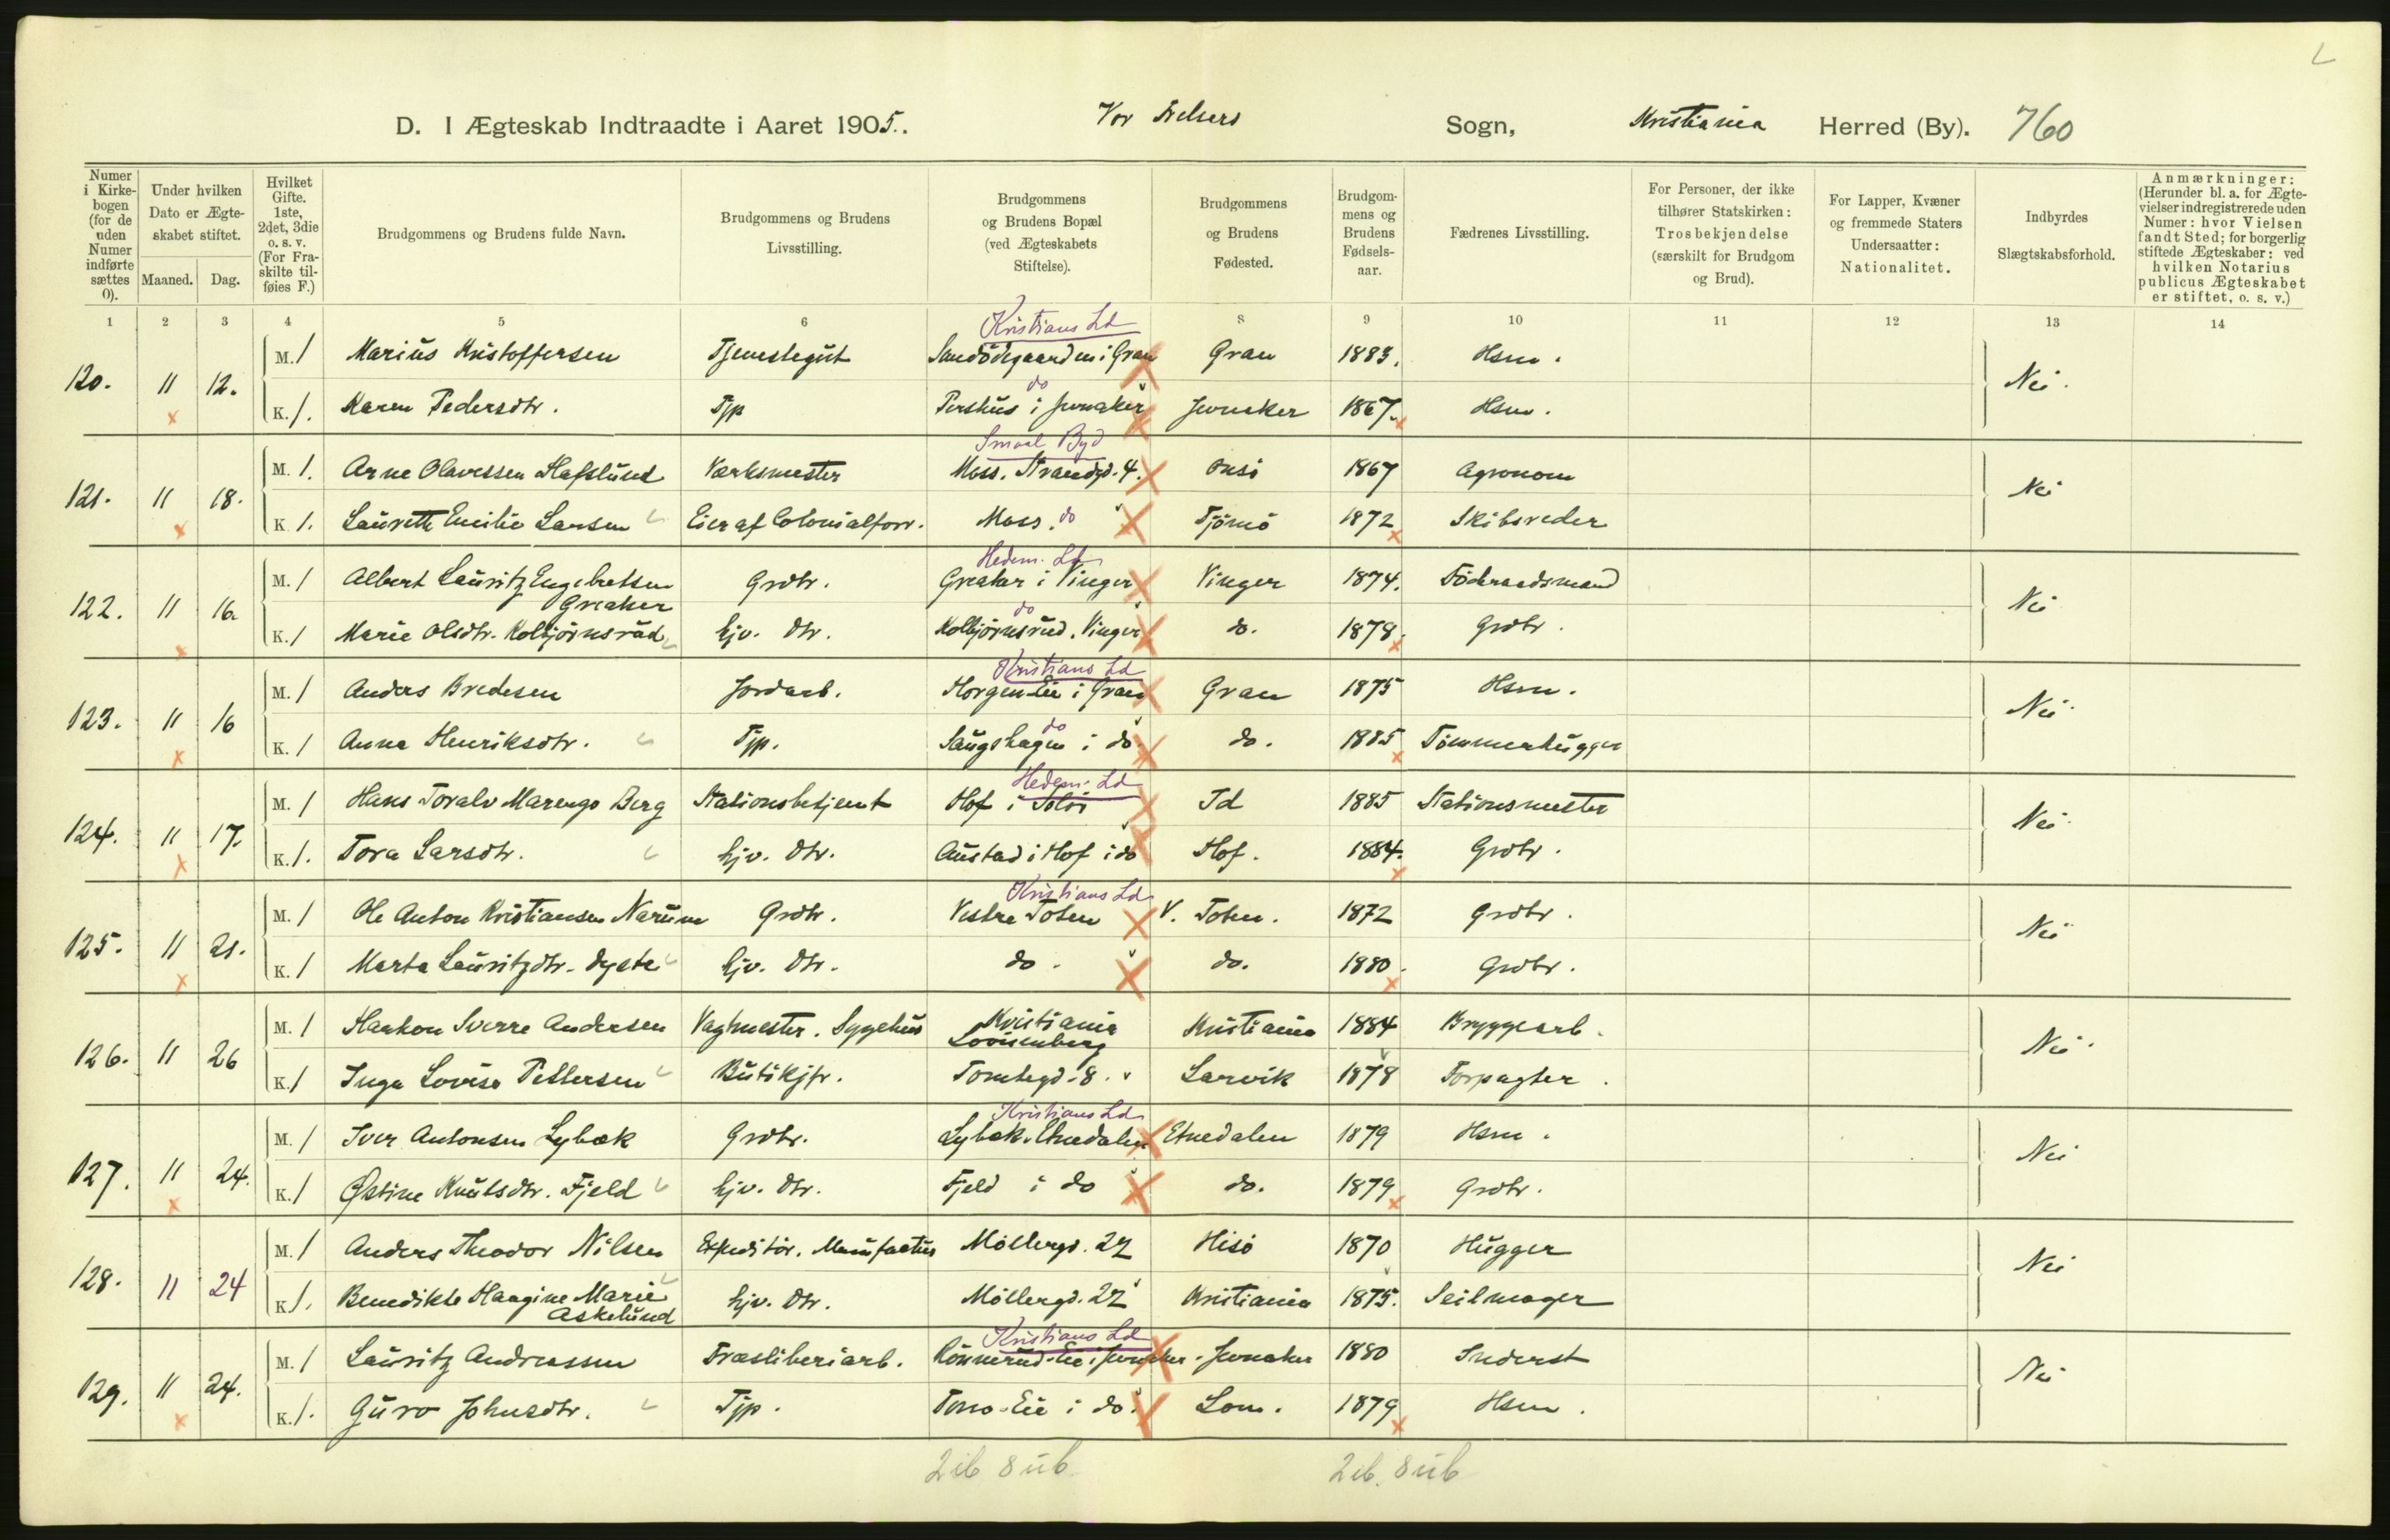 L
D. I Ægteskab Indtraadte i Aaret 1905. Vor Frelsers Sogn, Kristiania Herred (By). 760
Numer i Kirkebogen (for de uden Numer indførte sættes 0).
Under hvilken Dato er Ægteskabet stiftet.
Maaned. Dag.
Hvilket Gifte. 1ste, 2det, 3die o. s. v. (For Fraskilte tilføies F.)
Brudgommens og Brudens fulde Navn.
Brudgommens og Brudens Livsstilling.
Brudgommens og Brudens Bopæl (ved Ægteskabets Stiftelse).
Brudgommens og Brudens Fødested.
Brudgommens og Brudens Fødselsaar.
Fædrenes Livsstilling.
For Personer, der ikke tilhører Statskirken: Trosbekjendelse (særskilt for Brudgom og Brud).
For Lapper, Kvæner og fremmede Staters Undersaatter: Nationalitet.
Indbyrdes Slægtskabsforhold.
Anmærkninger: (Herunder bl. a. for Ægtevielser indregistrerede uden Numer: hvor Vielsen fandt Sted; for borgerlig stiftede Ægteskaber: ved hvilken Notarius publicus Ægteskabet er stiftet, o. s. v.)
1 2 3 4 5 6 8 9 10 11 12 13 14
Kristians Ld
120. 11 12. M. 1 Marius Kristoffersen Tjenestegut Sandödegaarden i Gran Gran 1883. Hsm. Nei.
do
K. 1. Karen Pedersdtr. Tjp Pershus i Jevnaker Jevnaker 1867. Hsm.
Smaal Byd
121. 11 18. M. 1. Arne Olavessen Hafslund Værksmester Moss. Strandgd. 4. Onsö 1867 Agronom Nei
K 1. Laurette Emilie Larsen Eier af Colonialforr. Moss. do Tjömö 1872 Skibsreder
Hedem. Ld
122. 11 16. M. 1 Albert Lauritz Engebretsen Greaker Grdbr. Greaker i Vinger Vinger 1874. Föderaadsmand Nei
do
K. 1 Marie Olsdtr. Kolbjörnsrud hjv. Dtr. Kolbjörnsrud, Vinger do. 1878. Grdbr.
Kristians Ld
123. 11 16 M. 1 Anders Bredesen Jordarb. Horgen Eie i Gran Gran 1875 Hsm. Nei
do
K. 1 Anna Henriksdtr. Tjp. Saugshagen i do. do. 1885 Tömmerhugger
Hedem. Ld
124. 11 17. M. 1 Hans Toralv Marengo Berg Stationsbetjent Hof i Solör Id 1885 Stationsmester Nei
K. 1. Tora Larsdtr. hjv. Dtr. Austad i Hof i do Hof. 1884. Grdbr.
Kristians Ld
125. 11 21. M. 1 Ole Anton Kristiansen Narum Grdbr. Vestre Toten V. Toten. 1872 Grdbr. Nei
K. 1 Marta Lauritzdtr. Dyste hjv. Dtr. do. do. 1880. Grdbr.
126. 11 26 M. 1 Haakon Sverre Andersen Vagtmester. Sygehus Kristiania Lovisenberg Kristiania 1884 Bryggearb. Nei.
K. 1 Inga Lovise Pettersen Butikjfr. Tomtegd. 8. Larvik 1878 Forpagter.
Kristians Ld
127. 11 24. M. 1 Iver Antonsen Lybæk Grdbr. Lybæk. Etnedalen Etnedalen 1879 Hsm. Nei
K. 1 Østine Knutsdtr. Fjeld hjv. Dtr. Fjeld i do do. 1879 Grdbr.
128. 11 24 M. 1 Anders Theodor Nilsen Expeditör. Manufactur Möllergd. 27 Hisö 1870 Hugger Nei
K 1. Benedikte Haagine Marie Askelund hjv. Dtr. Möllergd. 27 Kristiania 1875. Seilmager
Kristians Ld
129. 11 24. M. 1 Lauritz Andreassen Træsliberiarb. Rönnerud-Eie i Jevnaker. Jevnaker 1880 Inderst Nei
K. 1. Guro Johnsdtr. Tjp. Tomo-Eie i do. Lom. 1879 Hsm.
2 ib 8 uib 2 ib. 8 uib